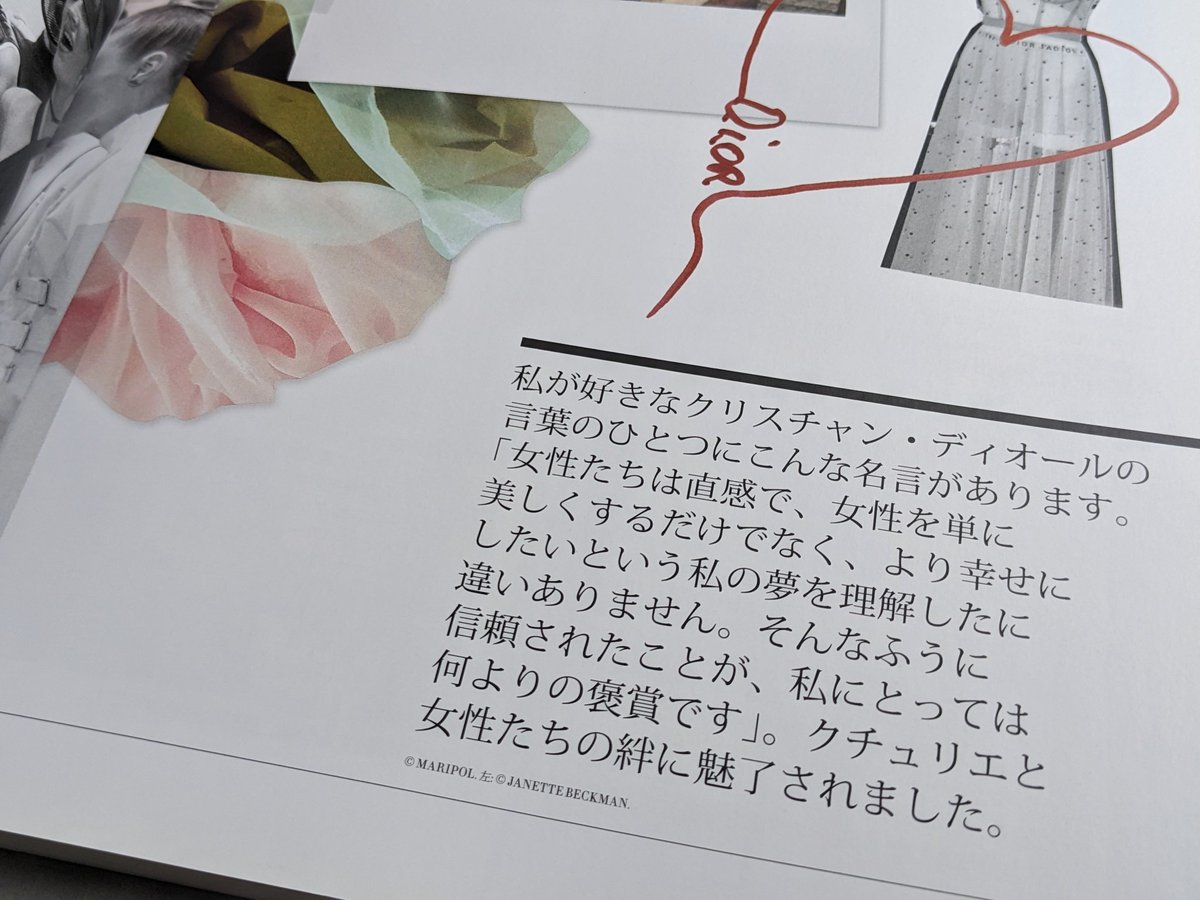 Dior
私が好きなクリスチャン・ディオールの
言葉のひとつにこんな名言があります。
「女性たちは直感で、女性を単に
美しくするだけでなく、より幸せに
したいという私の夢を理解したに
違いありません。そんなふうに
信頼されたことが、私にとっては
何よりの褒賞です」。クチュリエと
女性たちの絆に魅了されました。
©MARIPOL. 左: © JANETTE BECKMAN.